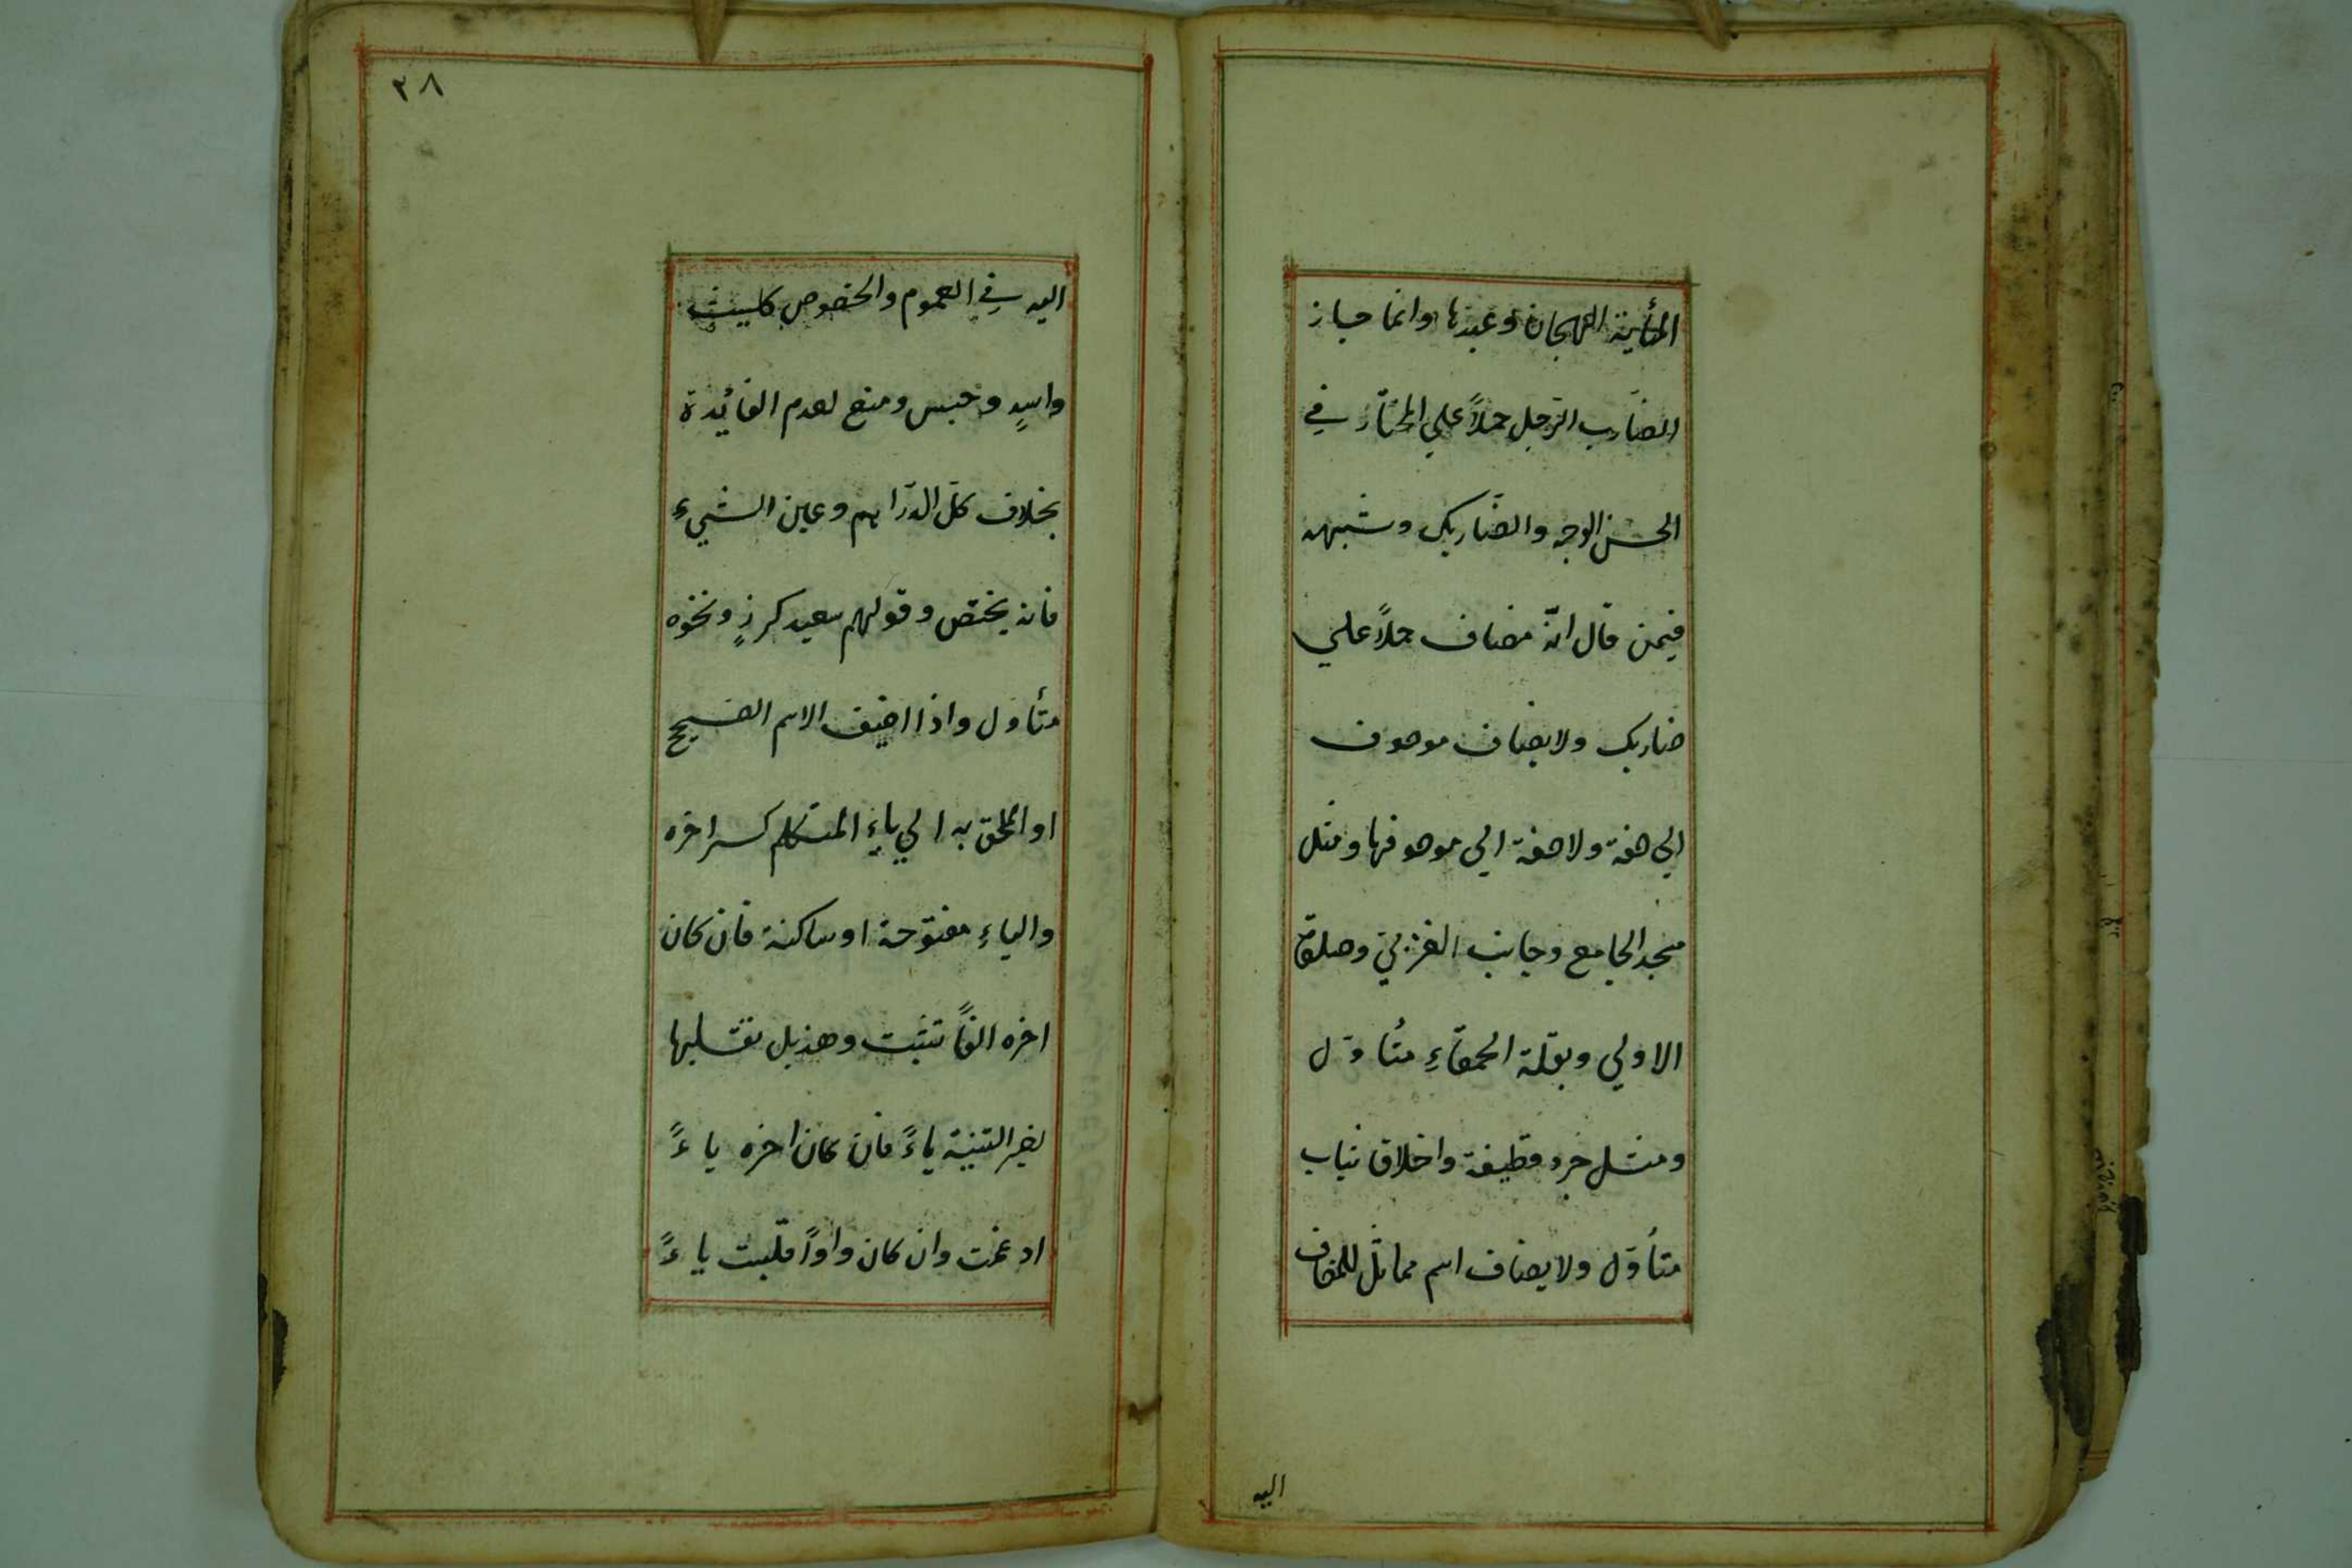 المأية الهجان وعبدها وانما جاز
الضارب الرّجل حملاً علي المختار في
الحسن الوجه والضاربك وشبهه
فيمن قال انّه مضاف حملاً علي
ضاربك ولا يضاف موصوف
الي صفة ولا صفة الي موصوفها ومثل
مسجد الجامع وجانب الغربيّ وصلوة
الاولي وبقلة الحمقاءِ متأوّل
ومثل جرد قطيفة واخلاق ثياب
متأوّل ولا يضاف اسم مماثل للمضاف
اليه
٣٨
اليه في العموم والخصوص كليث
واسدٍ وحبس ومنع لعدم الفائدة
بخلاف كلّ الدّراهم وعين الشيءِ
فانه يختصّ وقولهم سعيد كرزٍ ونحوه
متأول واذا اضيف الاسم الصحيح
او الملحق به الي ياءِ المتكلم كسر اخره
والياءِ مفتوحة او ساكنة فان كان
اخره الفاً تثبت وهذيل تقلبها
لغير التثنية ياءً فان كان اخره ياءً
ادغمت وان كان واواً قلبت ياءً